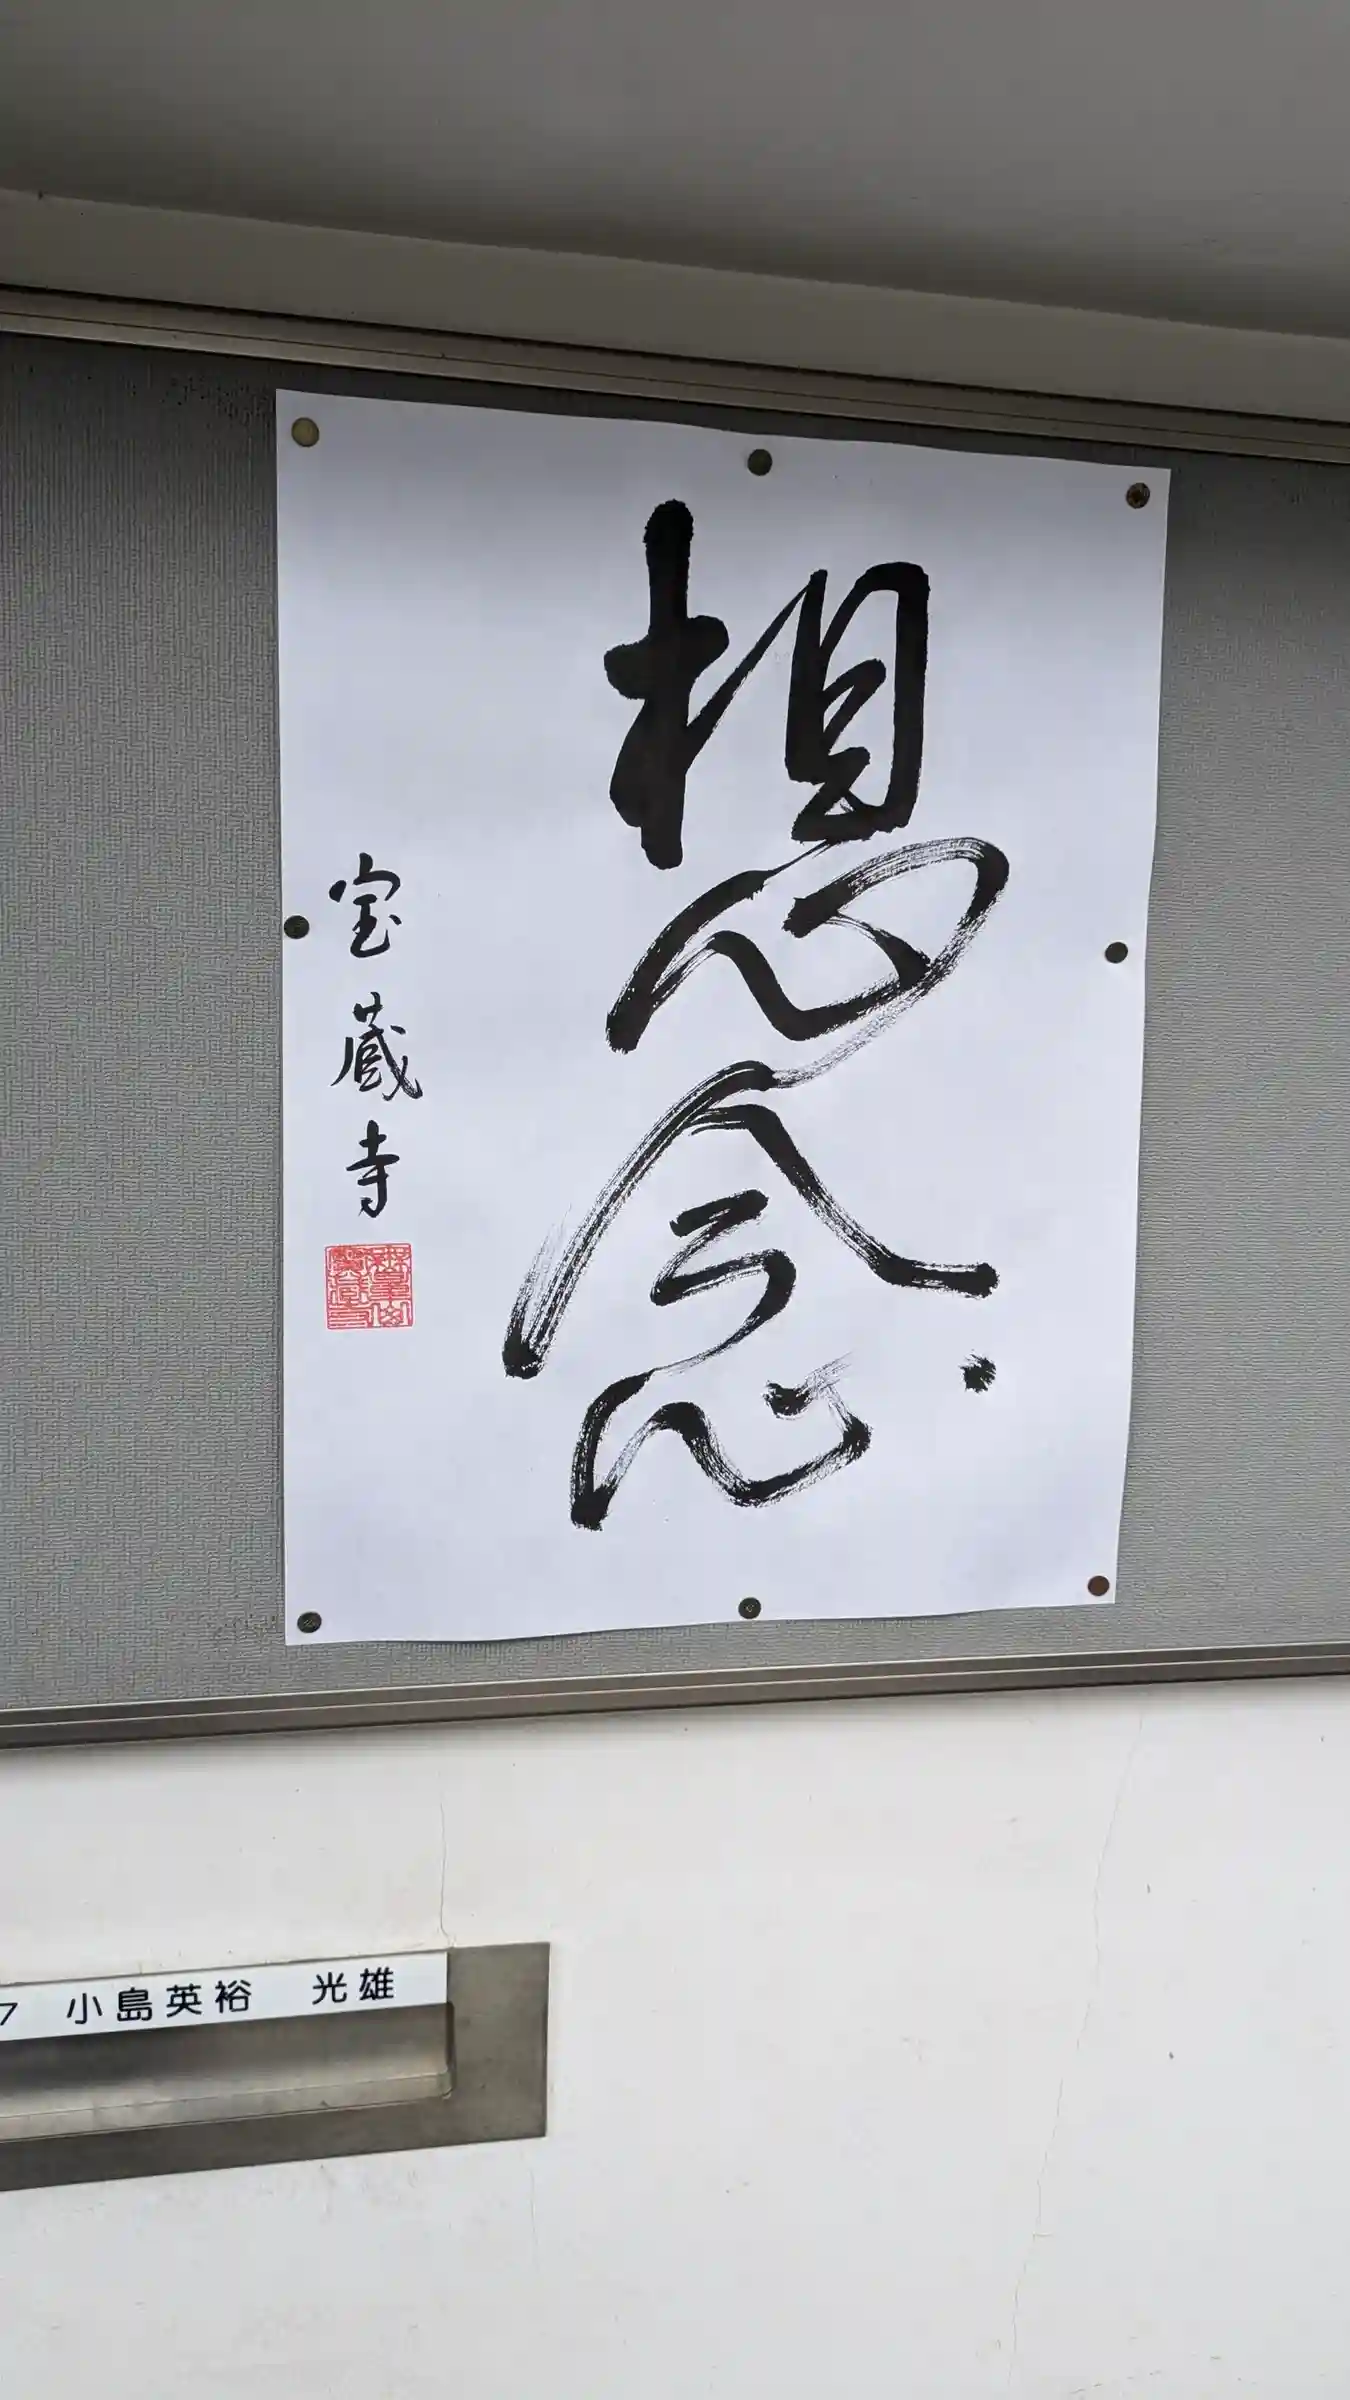 想念
宝蔵寺
7 小島英裕 光雄